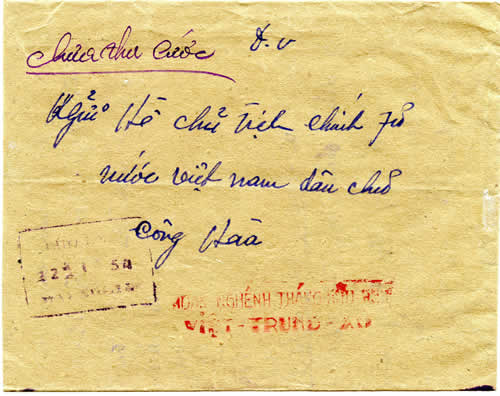 chưa thu cước
Kgửi Hồ chủ tịch chính fủ
nước việt nam dân chủ
cộng Hoà
12 54
NGHÊNH THẮNG
VIỆT - TRUNG - XÔ